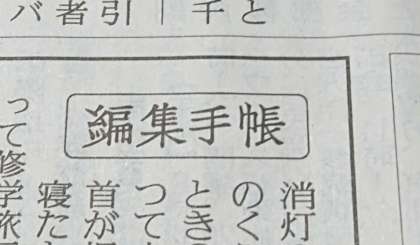 と
ー
引
者
バ
編集手帳
消灯
のく
とき
つて
首が
寝た
って修学旅